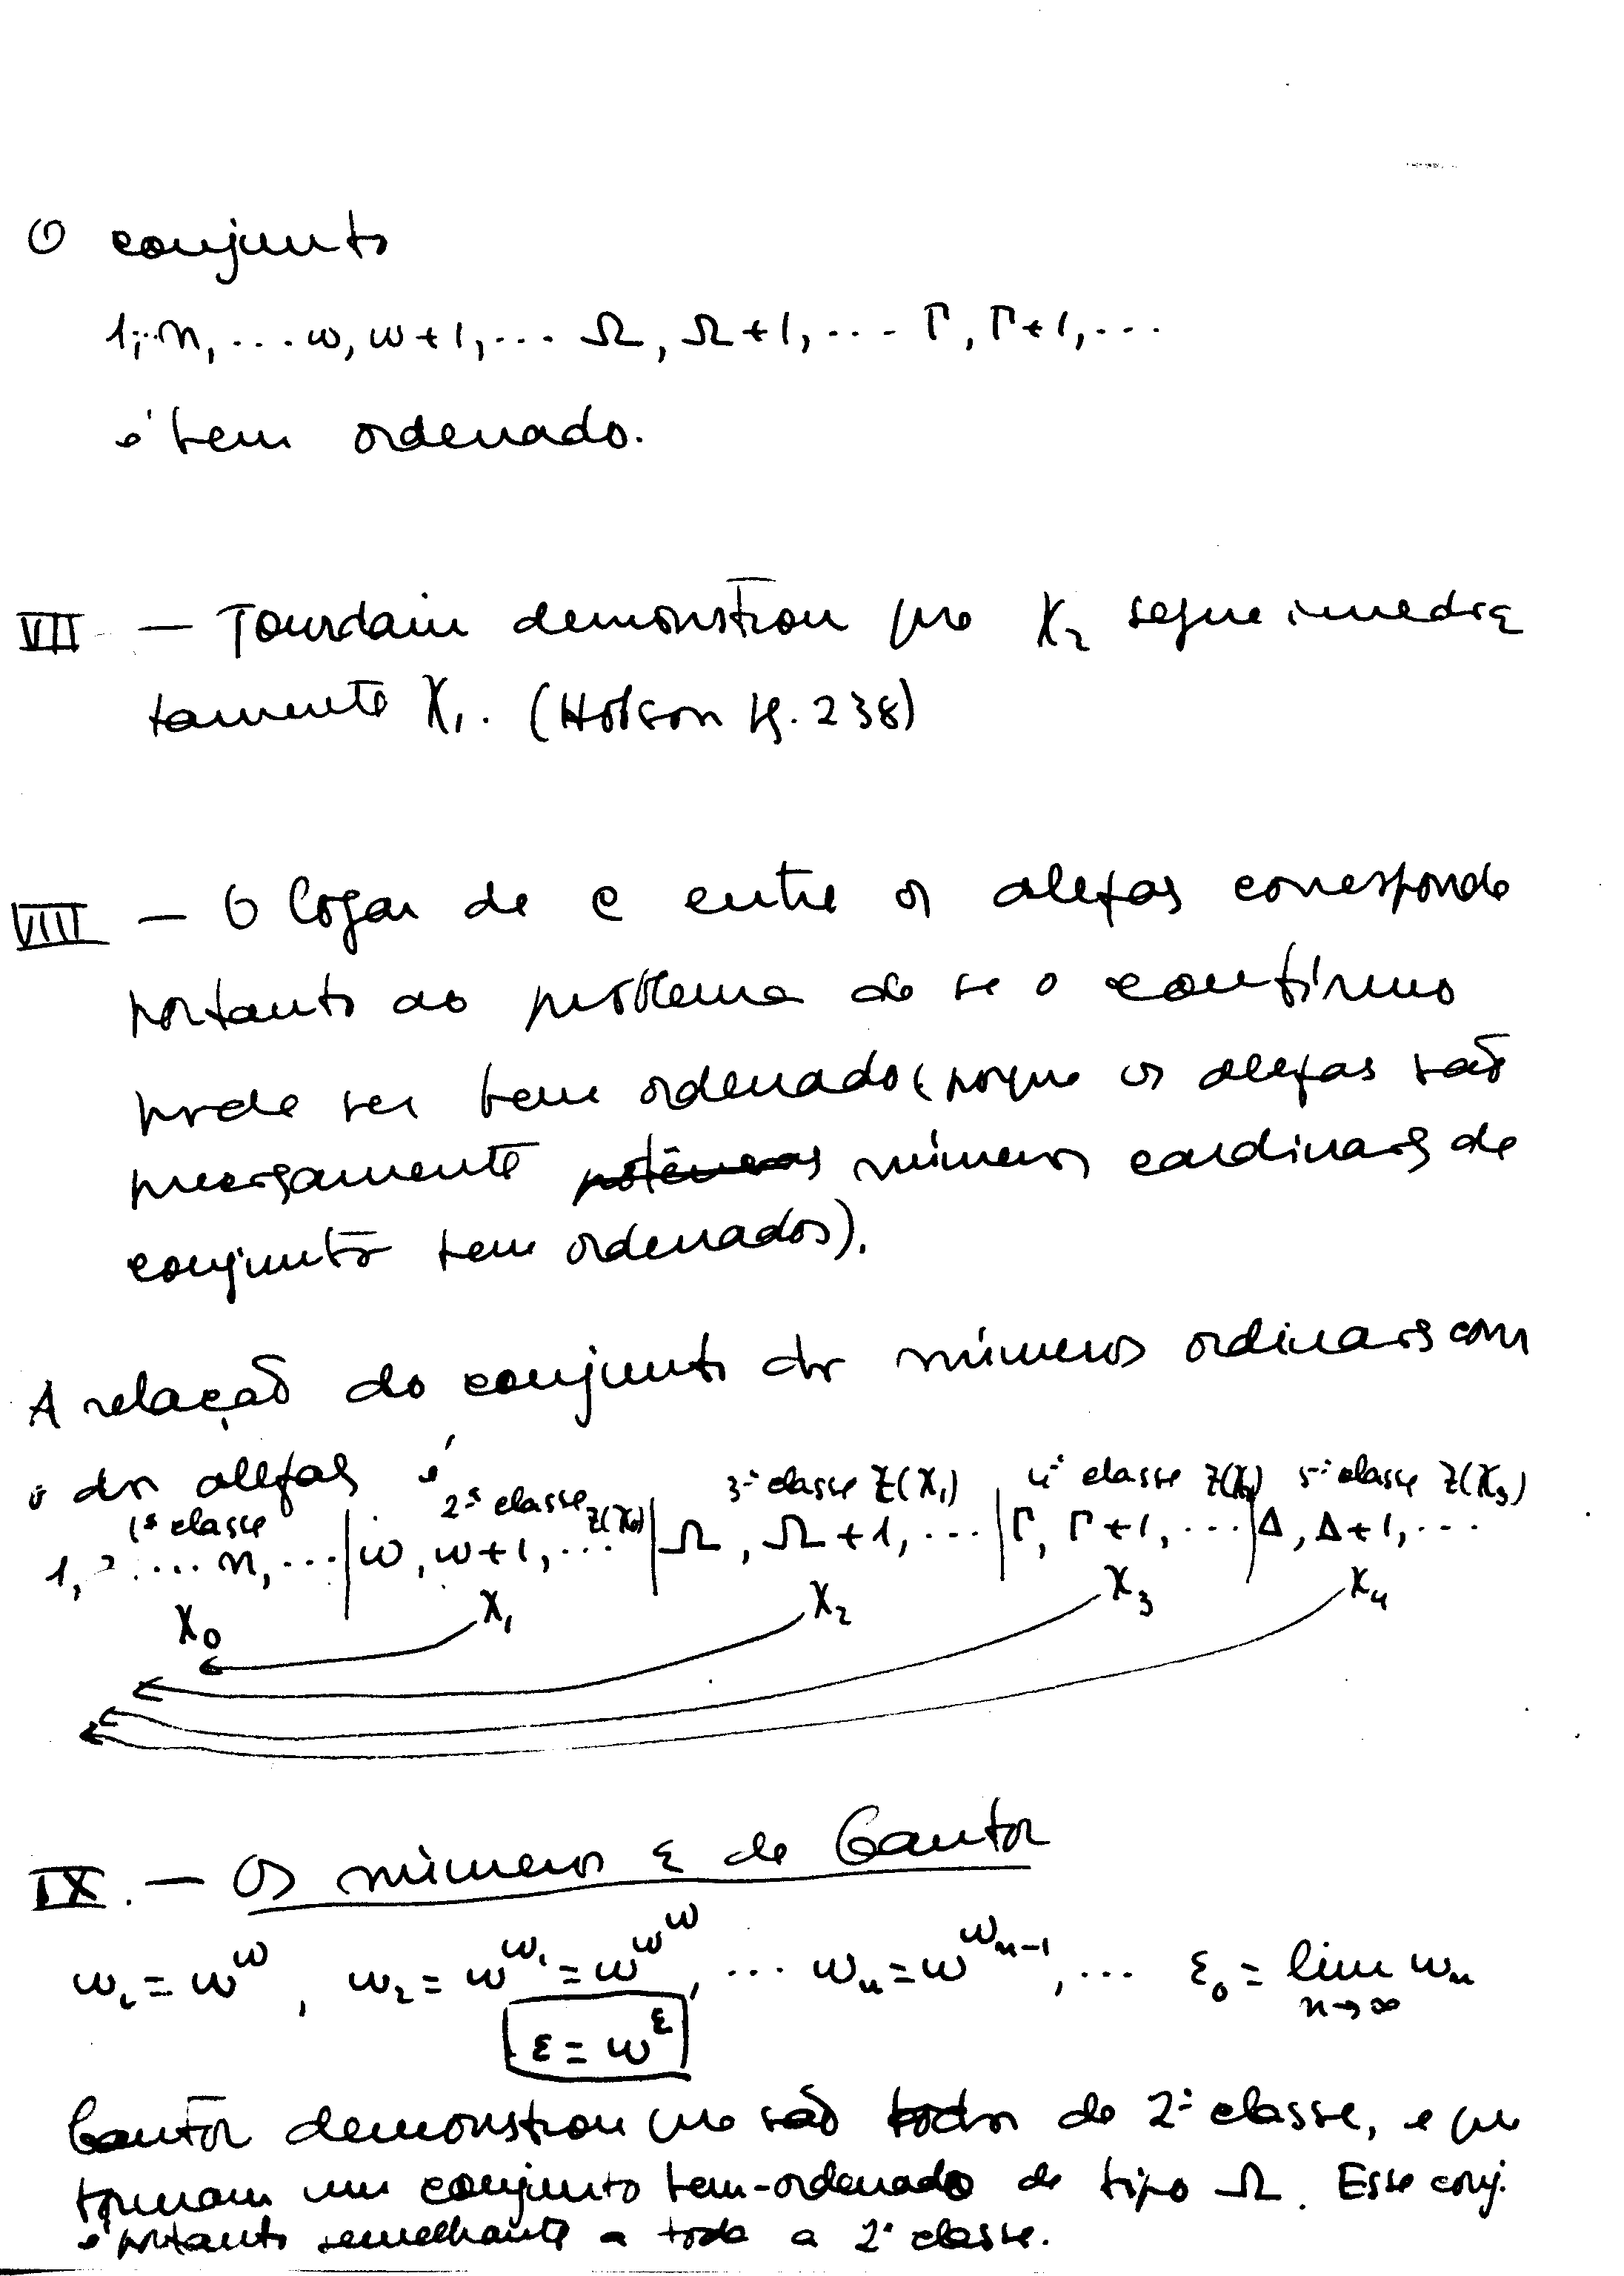 O conjunto
1, .. n, ... ω, ω+1, ... Ω, Ω+1, ... Γ, Γ+1, ...
é bem ordenado.
VII — Jourdain demonstrou que ℵ₂ segue imedia
tamente ℵ₁. (Hobson pg. 238)
VIII — O logar de c entre os alefas corresponde
portanto ao problema de se o contínuo
pode ser bem ordenado (porque os alefas são
precisamente potências números cardinais de
conjuntos bem ordenados).
A relação do conjunto dos números ordinais com
o dos alefas é
1ª classe 2ª classe Z(ℵ₀) 3ª classe Z(ℵ₁) 4ª classe Z(ℵ₂) 5ª classe Z(ℵ₃)
1, 2 ... n, ... | ω, ω+1, ... | Ω, Ω+1, ... | Γ, Γ+1, ... | Δ, Δ+1, ...
ℵ₀ ℵ₁ ℵ₂ ℵ₃ ℵ₄
IX. — Os números ε de Cantor
ω₁ = ω^ω, ω₂ = ω^ω₁ = ω^ω^ω, ... ωₙ = ω^ωₙ₋₁, ... ε₀ = lim ωₙ
n→∞
ε = ω^ε
Cantor demonstrou que são todos de 2ª classe, e que
formam um conjunto bem-ordenado de tipo Ω. Esse conj.
é portanto semelhante a toda a 2ª classe.